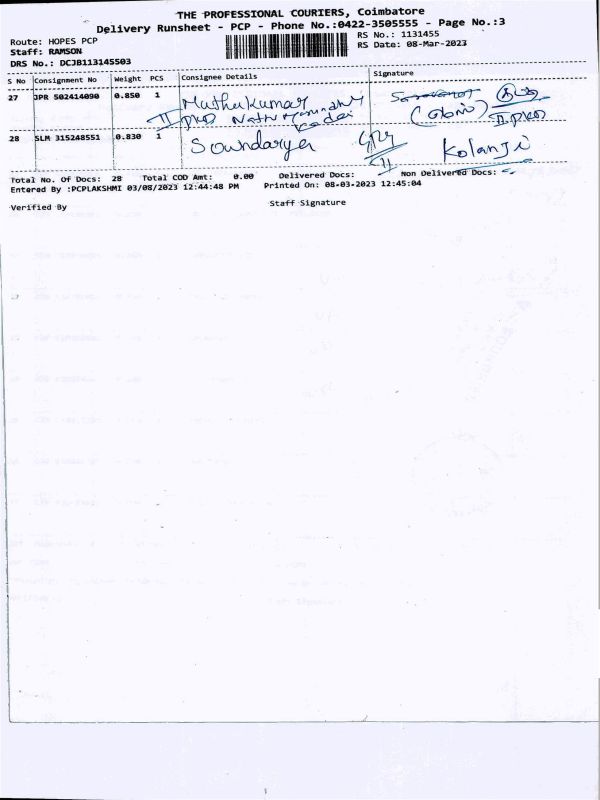 THE PROFESSIONAL COURIERS, Coimbatore
Delivery Runsheet - PCP - Phone No.:0422-3505555 - Page No.:3
Route: HOPES PCP
RS No.: 1131455
Staff: RAMSON
RS Date: 08-Mar-2023
DRS No.: DCJB113145503
S No Consignment No Weight PCS Consignee Details Signature
27 JPR 502414090 0.850 1 Muthukumar
II
28 SLM 315248551 0.830 1 Soundarya Kolanji
Total No. Of Docs: 28 Total COD Amt: 0.00 Delivered Docs: Non Delivered Docs:
Entered By :PCPLAKSHMI 03/08/2023 12:44:48 PM Printed On: 08-03-2023 12:45:04
Verified By Staff Signature